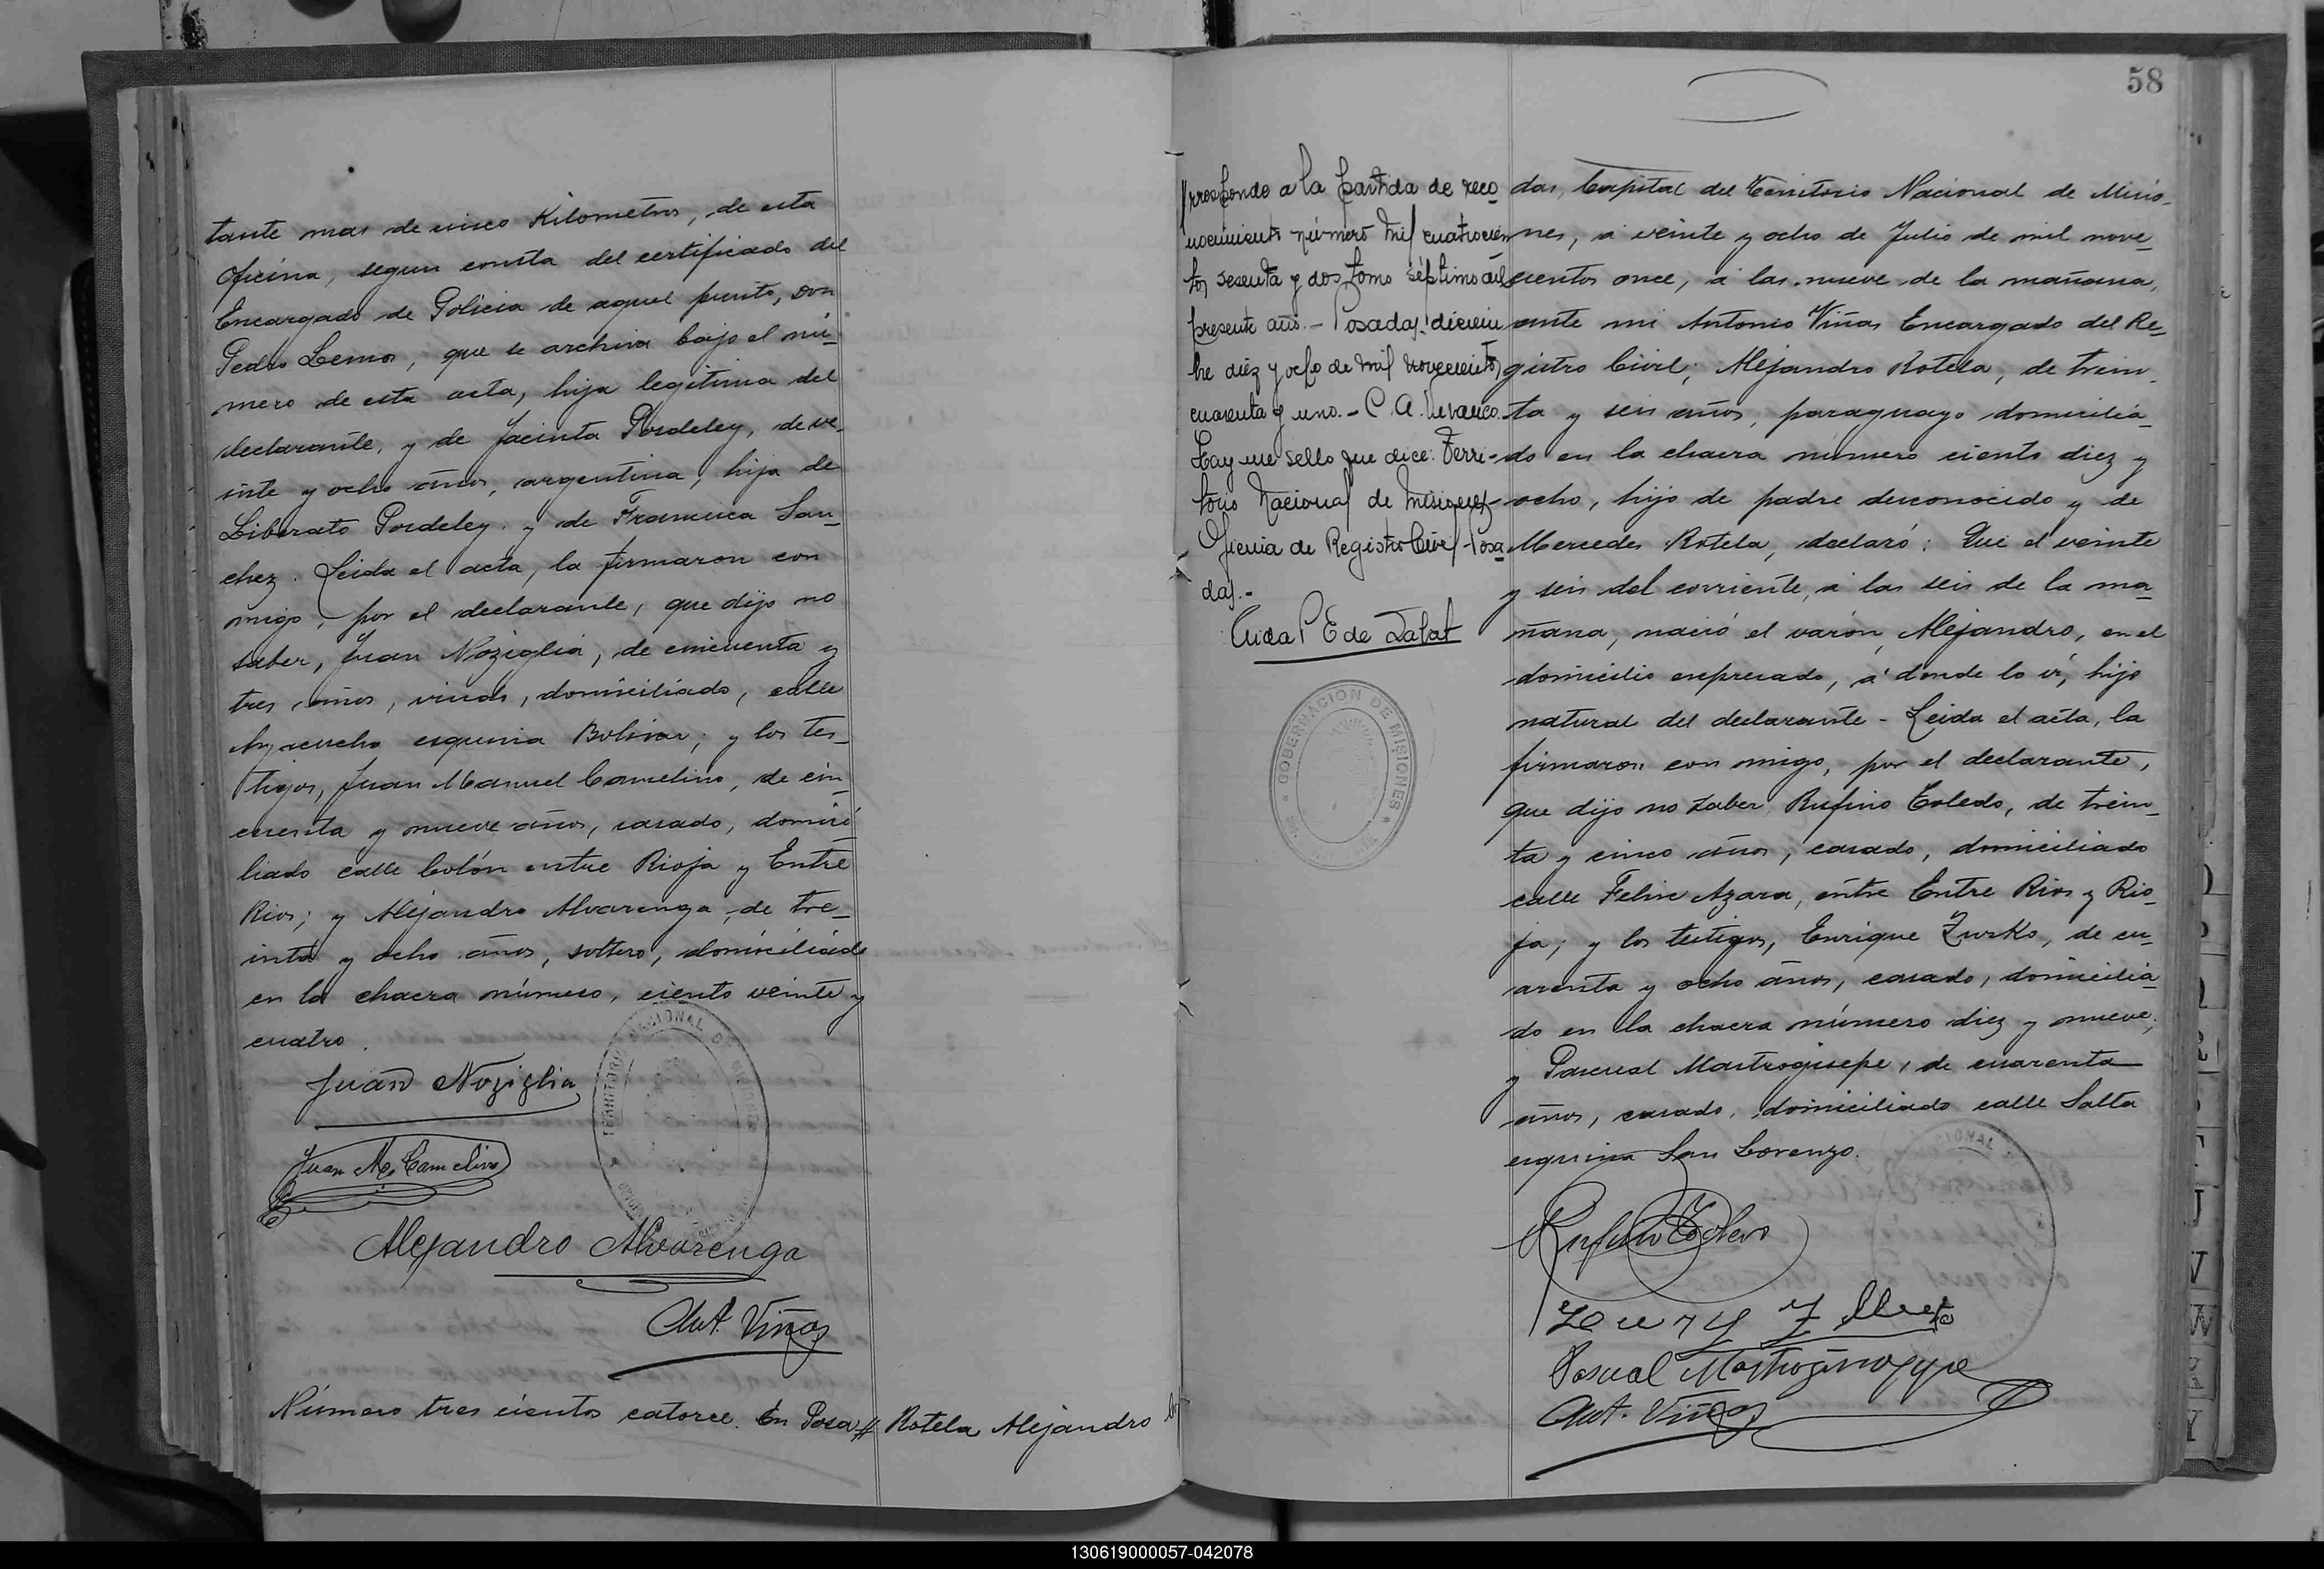 tante mas de cinco Kilometros, de esta
Oficina, segun consta del certificado del
Encargado de Policia de aquel punto, don
Pedro Lemos, que se archiva bajo el nú-
mero de esta acta, hija legitima del
declarante, y de Jacinta Pordeley, de ve-
inte y ocho años, argentina, hija de
Liberato Pordeley y de Francisca San-
chez. Leida el acta, la firmaron con
migo, por el declarante, que dijo no
saber, Juan Noziglia, de cincuenta y
tres años, viudo, domiciliado, calle
Ayacucho esquina Bolivar; y los tes-
tigos, Juan Manuel Camelino, de cin-
cuenta y nueve años, casado, domici
liado calle Colón entre Rioja y Entre
Rios; y Alejandro Alvarenga, de tre-
inta y ocho años, soltero, domiciliado
en la chacra número, ciento veinte y
cuatro.
TERRITORIO NACIONAL DE MISIONES
Juan Noziglia
Juan M. Camelino
Alejandro Alvarenga
Ant. Viñas
Número tres cientos catorce. En Posa-
# Rotela Alejandro
58
rresponde a la partida de reco-
nocimiento número mil cuatrocien
tos sesenta y dos tomo séptimo del
presente año.- Posadas, diciem
bre diez y ocho de mil novecientos
cuarenta y uno.- C. A.
Hay un sello que dice: Terri-
torio Nacional de Misiones-
Oficina de Registro Civil - Posa-
das.-
E de
GOBERNACION DE MISIONES
das, Capital del Territorio Nacional de Misio-
nes, á veinte y ocho de Julio de mil nove-
cientos once, á las nueve de la mañana,
ante mi Antonio Viñas Encargado del Re-
gistro Civil; Alejandro Rotela, de trein-
ta y seis años, paraguayo domicilia-
do en la chacra número ciento diez y
ocho, hijo de padre desconocido y de
Mercedes Rotela, declaró: Que el veinte
y seis del corriente, á las seis de la ma-
ñana, nació el varón, Alejandro, en el
domicilio expresado, á donde lo ví, hijo
natural del declarante - Leida el acta, la
firmaron con migo, por el declarante,
que dijo no saber, Rufino Toledo, de trein-
ta y cinco años, casado, domiciliado
calle Felix Azara, entre Entre Rios y Rio-
ja; y los testigos, Enrique Zurko, de cu-
arenta y ocho años, casado, domicilia-
do en la chacra número diez y nueve;
y Pascual Mastrogisepe, de cuarenta
años, casado, domiciliado calle Salta
esquina San Lorenzo.
Rufino Toledo
Pasual
Ant. Viñas
130619000057-042078